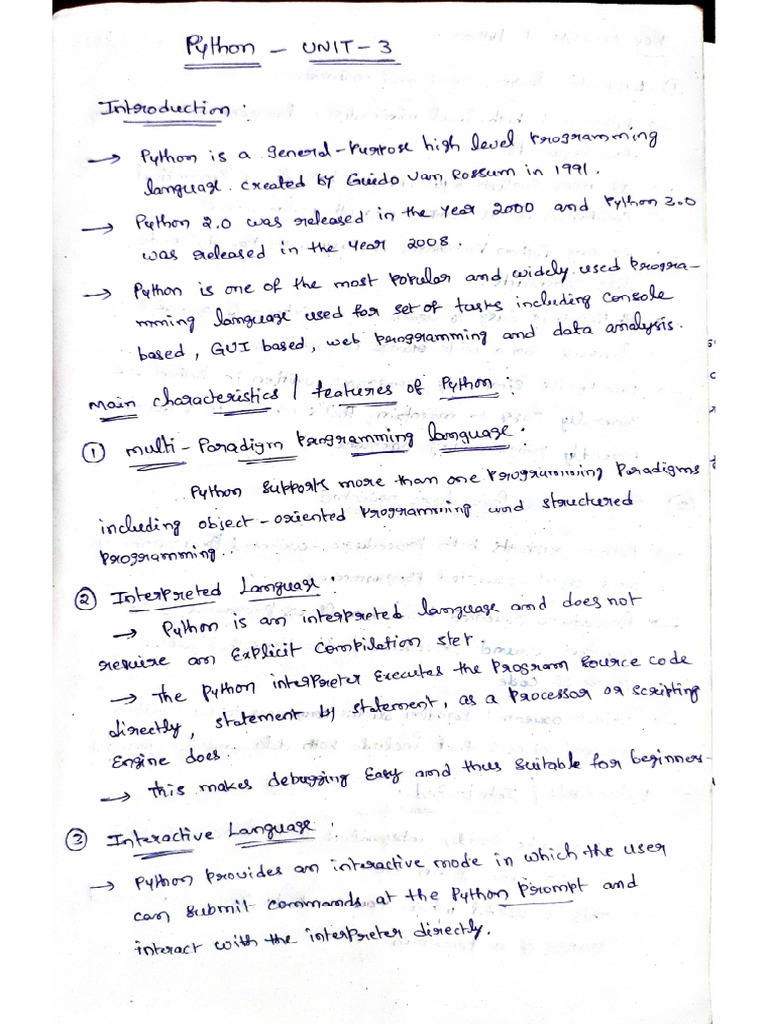 Python - UNIT-3
Introduction:
→ Python is a general-purpose high level programming
language. created by Guido Van Rossum in 1991.
→ Python 2.0 was released in the year 2000 and Python 3.0
was released in the year 2008.
→ Python is one of the most popular and widely used progra-
mming language used for set of tasks including console
based, GUI based, web programming and data analysis.
main characteristics / features of Python:
① multi-Paradigm programming language:
Python supports more than one programming paradigms
including object-oriented programming and structured
programming.
② Interpreted Language:
→ Python is an interpreted language and does not
require an explicit compilation step.
→ The Python interpreter executes the program source code
directly, statement by statement, as a processor or scripting
Engine does.
→ This makes debugging Easy and thus suitable for beginners.
③ Interactive Language:
→ Python provides an interactive mode in which the user
can submit commands at the Python prompt and
interact with the interpreter directly.